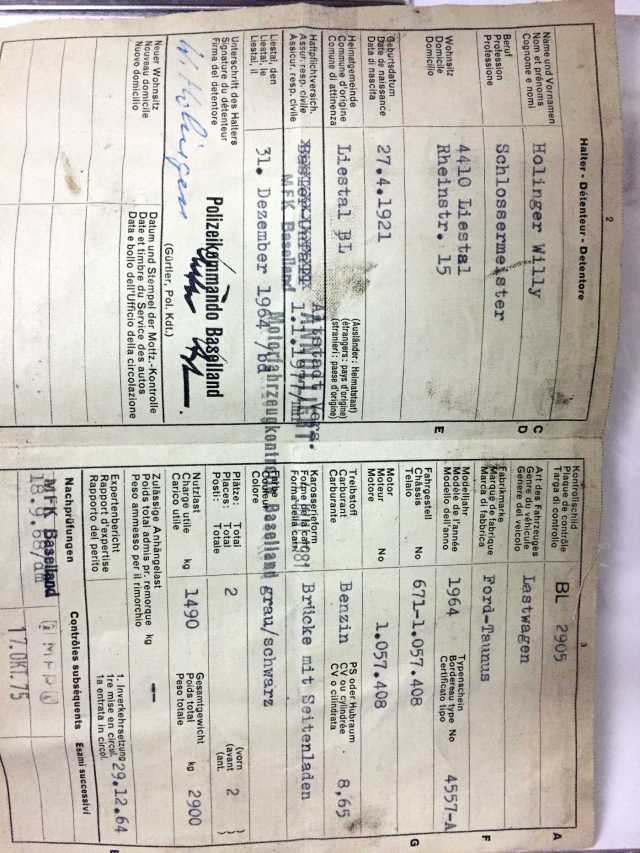 2
Halter - Détenteur - Detentore
Name und Vornamen
Nom et prénoms
Cognome e nomi
Holinger Willy
C
Beruf
Profession
Professione
Schlossermeister
D
Wohnsitz
Domicile
Domicilio
4410 Liestal
Rheinstr. 15
E
Geburtsdatum
Date de naissance
Data di nascita
27.4.1921
Heimatgemeinde
Commune d'origine
Comune di attinenza
Liestal BL
(Ausländer: Heimatstaat)
(étrangers: pays d'origine)
(stranieri: paese d'origine)
Haftpflichtversich.
Assur. resp. civile
Assicur. resp. civile
Altstadt Vers.
MFK Baselland 1.1.1977/
Liestal, den
Liestal, le
Liestal, il
31. Dezember 1964 /Bd
Motorfahrzeugkontrolle Baselland
Unterschrift des Halters
Signature du détenteur
Firma del detentore
W. Holinger
Polizeikommando Baselland
(Gürtler, Pol. Kdt.)
Neuer Wohnsitz
Nouveau domicile
Nuovo domicilio
Datum und Stempel der Motfz.-Kontrolle
Date et timbre du Service des autos
Data e bollo dell'Ufficio della circolazione
3
Kontrollschild
Plaque de contrôle
Targa di controllo
BL 2905
A
Art des Fahrzeuges
Genre du véhicule
Genere del veicolo
Lastwagen
Fabrikmarke
Marque de fabrique
Marca di fabbrica
Ford-Taunus
F
Modelljahr
Modèle de l'année
Modello dell'anno
1964
Typenschein
Bordereau type No
Certificato tipo
4557-A
Fahrgestell
Châssis No
Telaio
671-1.057.408
G
Motor
Moteur No
Motore
1.057.408
Treibstoff
Carburant
Carburante
Benzin
PS oder Hubraum
CV ou cylindrée
CV o cilindrata
8,65
Karosserieform
Forme de la carr.
Forma della carr.
Brücke mit Seitenladen
Farbe
Couleur
Colore
grau/schwarz
Plätze: Total
Places: Total
Posti: Totale
2
(vorn
(avant
(ant.
2
Nutzlast
Charge utile kg
Carico utile
1490
Gesamtgewicht
Poids total kg
Peso totale
2900
Zulässige Anhängelast
Poids total admis pr. remorque kg
Peso ammesso per il rimorchio
—
Expertenbericht
Rapport d'expertise
Rapporto del perito
1. Inverkehrsetzung
1re mise en circul.
1a entrata in circol.
29.12.64
Nachprüfungen Contrôles subséquents Esami successivi
MFK Baselland
18.9.68/dm
17.OKT.75